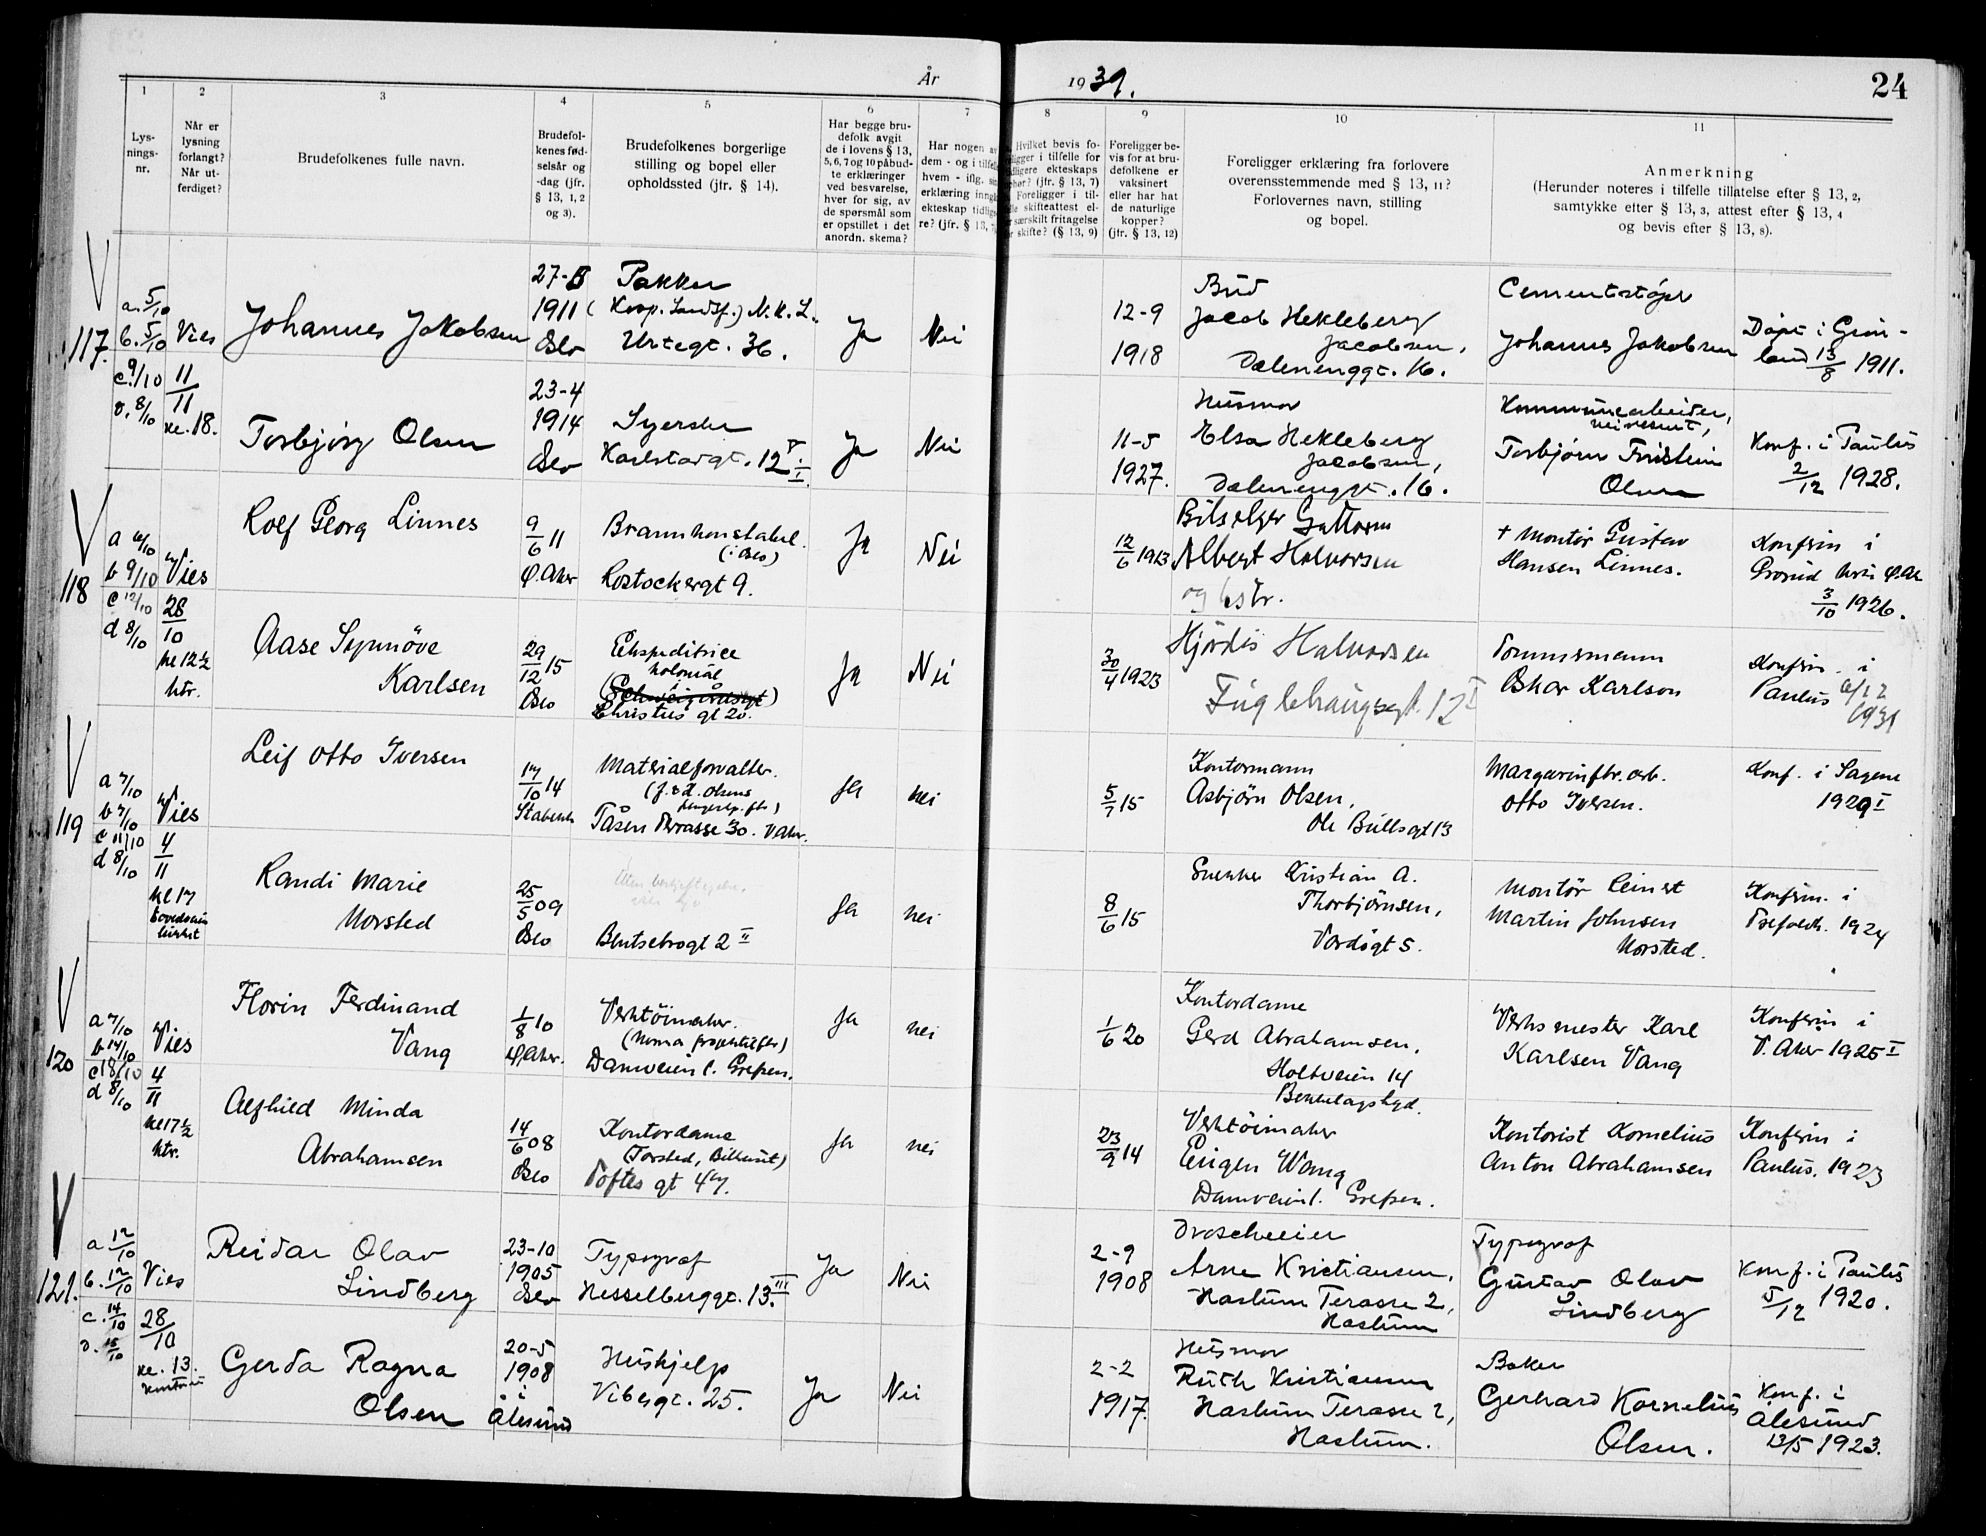 År 1939.
24
1
2
3
4
5
6
7
8
9
10
11
Lys-
nings-
nr.
Når er
lysning
forlangt?
Når ut-
ferdiget?
Brudefolkenes fulle navn.
Brudefol-
kenes fød-
selsår og
-dag (jfr.
§ 13, 1, 2
og 3).
Brudefolkenes borgerlige
stilling og bopel eller
opholdssted (jfr. § 14).
Har begge bru-
defolk avgit
de i lovens § 13,
5, 6, 7 og 10 påbud-
te erklæringer
ved besvarelse,
hver for sig, av
de spørsmål som
er opstillet i det
anordn. skema?
Har nogen av
dem - og i tilfelle
hvem - iflg.
erklæring inngå
ekteskap tidlige
re? (jfr. § 13,
Hvilket bevis fo-
ligger i tilfelle for
dligere ekteskaps
phør? (jfr. § 13, 7)
Foreligger i til-
lle skifteattest el-
r særskilt fritagelse
r skifte? (§ 13, 9)
Foreligger be-
vis for at bru-
defolkene er
vaksinert
eller har hat
de naturlige
kopper?
(jfr. § 13, 12)
Foreligger erklæring fra forlovere
overensstemmende med § 13, 11?
Forlovernes navn, stilling
og bopel.
Anmerkning
(Herunder noteres i tilfelle tillatelse efter § 13, 2,
samtykke efter § 13, 3, attest efter § 13, 4
og bevis efter § 13, 8).
117.
a. 5/10
b. 5/10
c. 9/10
d. 8/10
Vies
11/11
kl. 18.
Johannes Jakobsen
27-
1911
Oslo
Pakker
(Koop. Landsf.) N.K.L.
Urtegt. 36.
Ja
Nei
12-9
1918
Bud
Jacob Hekleberg
Jacobsen,
Dælenenggt. 16.
Cementstøper
Johannes Jakobsen
Døpt i Grøn-
land 13/8 1911.
Torbjørg Olsen
23-4
1914
Oslo
Syerske
Karlstadgt. 12 V. I
Ja
Nei
11-5
1927.
Husmor
Elsa Hekleberg
Jacobsen,
Dælenenggt. 16.
Kommunearbeider,
Torbjørn Fridstein
Olsen
Konf. i Paulus
2/12 1928.
118
a 6/10
b 9/10
c 12/10
d 8/10
Vies
28/10
kl 12 1/2
ktr.
Rolf Georg Linnes
9/6 11
Ø. Aker
Brannkonstabel
(i Oslo)
Rostockergt 9.
Ja
Nei
12/6 1913
Bilselger Guttorm
Albert Halvorsen
og hstr.
+ montør Gustav
Hansen Linnes.
Konfirm i
Grorud krk Ø.Ak
3/10 1926.
Aase Synnøve
Karlsen
29/12 15
Oslo
Ekspeditrice
kolonial
(Schweigårdsgt)
Christies gt 20.
Ja
Nei
30/4 1923
Hjördis Halvorsen
Fuglehauggt. 12 I
Tømmermann
Oskar Karlson
Konfirm. i
Paulus 6/12
1931
119
a 7/10
b 7/10
c 11/10
d 8/10
Vies
4/11
kl 17
Leif Otto Iversen
17/10 14
Stabekk
Materialforvalter.
Tåsen Terrasse 30. V Aker.
Ja
nei
5/7 15
Kontormann
Asbjørn Olsen,
Ole Bullsgt 13
Margarinfbr. arb.
Otto Iversen.
Konf. i Sagene
1929 I
Randi Marie
Morsted
25/5 09
Oslo
Uten beskjeftigelse.
Bentsebrogt 2 II
Ja
nei
8/6 15
Snekker Kristian A.
Thorbjørnsen,
Vardøgt 5.
Montör Einert
Martin Johnsen
Morsted.
Konfirm. i
Trefoldh. 1924
120
a 7/10
b 14/10
c 18/10
d 8/10
Vies
4/11
kl 17 1/2
ktr.
Florin Ferdinand
Vang
1/8 10
V. Aker.
Verktöimaker.
(Norma prosjektilfbr)
Damveien 1. Grefsen.
Ja
nei
1/6 20
Kontordame
Gerd Abrahamsen,
Holtveien 14
Bekkelagshgd.
Verksmester Karl
Karlsen Vang
Konfirm i
V. Aker 1925 I
Alfhild Minda
Abrahamsen
14/6 08
Oslo
Kontordame
(Torsted, Bilhuset)
Toftes gt 47.
Ja
nei
23/9 14
Verktöimaker
Eugen Wang
Damveien 1. Grefsen.
Kontorist Kornelius
Anton Abrahamsen
Konfirm i
Paulus. 1923
121.
a 12/10
b. 12/10
c. 14/10
d. 15/10
Vies
28/10
kl. 13.
Reidar Olav
Lindberg
23-10
1905
Oslo
Typograf
Hesselberggt. 13. III
Ja
Nei
2-9
1908
Droscheeier
Arne Kristiansen,
Haslum Terasse 2,
Haslum
Typograf
Gustav Olav
Lindberg
Konf. i Paulus
5/12 1920.
Gerda Ragna
Olsen
20-5
1908
i
Ålesund
Hushjelp
Vibesgt. 25.
Ja
Nei
2-2
1917.
Husmor
Ruth Kristiansen
Haslum Terasse 2,
Haslum.
Baker
Gerhard Kornelius
Olsen.
Konf. i
Ålesund
13/5 1923.